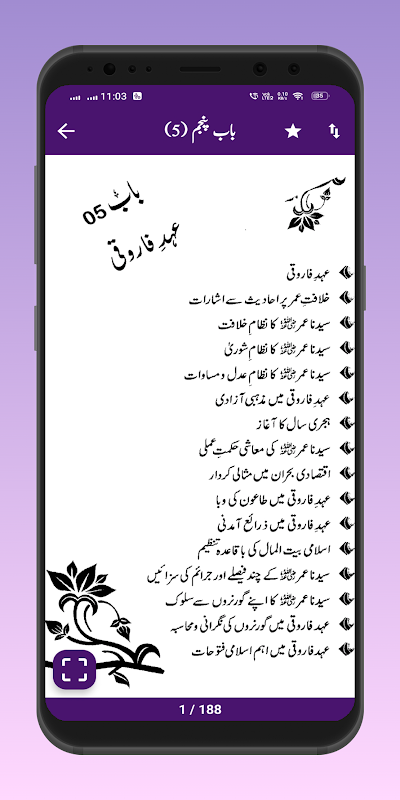 11:03
باب پنجم (5)
باب 05
عہدِ فاروقی
عہدِ فاروقی
خلافتِ عمر پر احادیث سے اشارات
سیدنا عمر ﷜ کا نظامِ خلافت
سیدنا عمر ﷜ کا نظامِ شوریٰ
سیدنا عمر ﷜ کا نظامِ عدل و مساوات
عہدِ فاروقی میں مذہبی آزادی
ہجری سال کا آغاز
سیدنا عمر ﷜ کی معاشی حکمتِ عملی
اقتصادی بحران میں مثالی کردار
عہدِ فاروقی میں طاعون کی وبا
عہدِ فاروقی میں ذرائع آمدنی
اسلامی بیت المال کی باقاعدہ تنظیم
سیدنا عمر ﷜ کے چند فیصلے اور جرائم کی سزائیں
سیدنا عمر ﷜ کا اپنے گورنروں سے سلوک
عہدِ فاروقی میں گورنروں کی نگرانی و محاسبہ
عہدِ فاروقی میں اہم اسلامی فتوحات
1 / 188